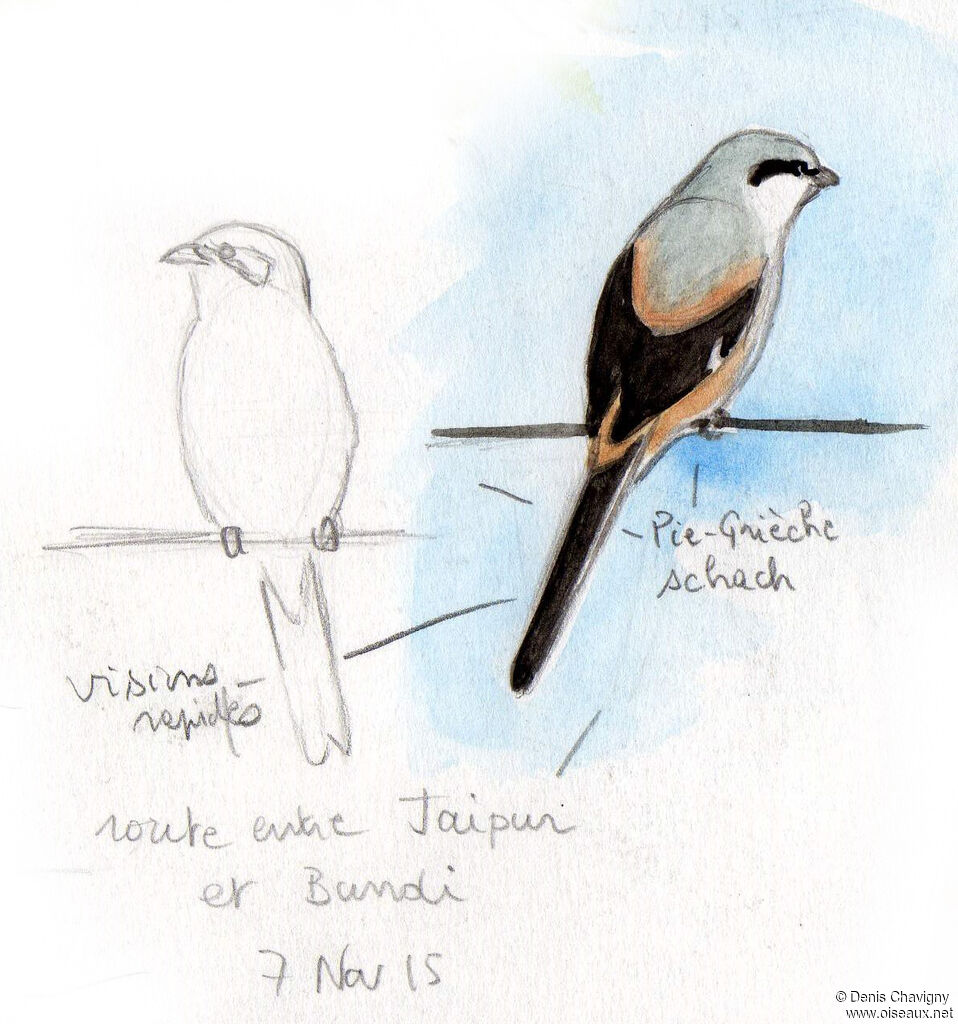 Pie-Grièche
schach
visions
rapides
route entre Jaipur
et Bundi
7 Nov 15
© Denis Chavigny
www.oiseaux.net